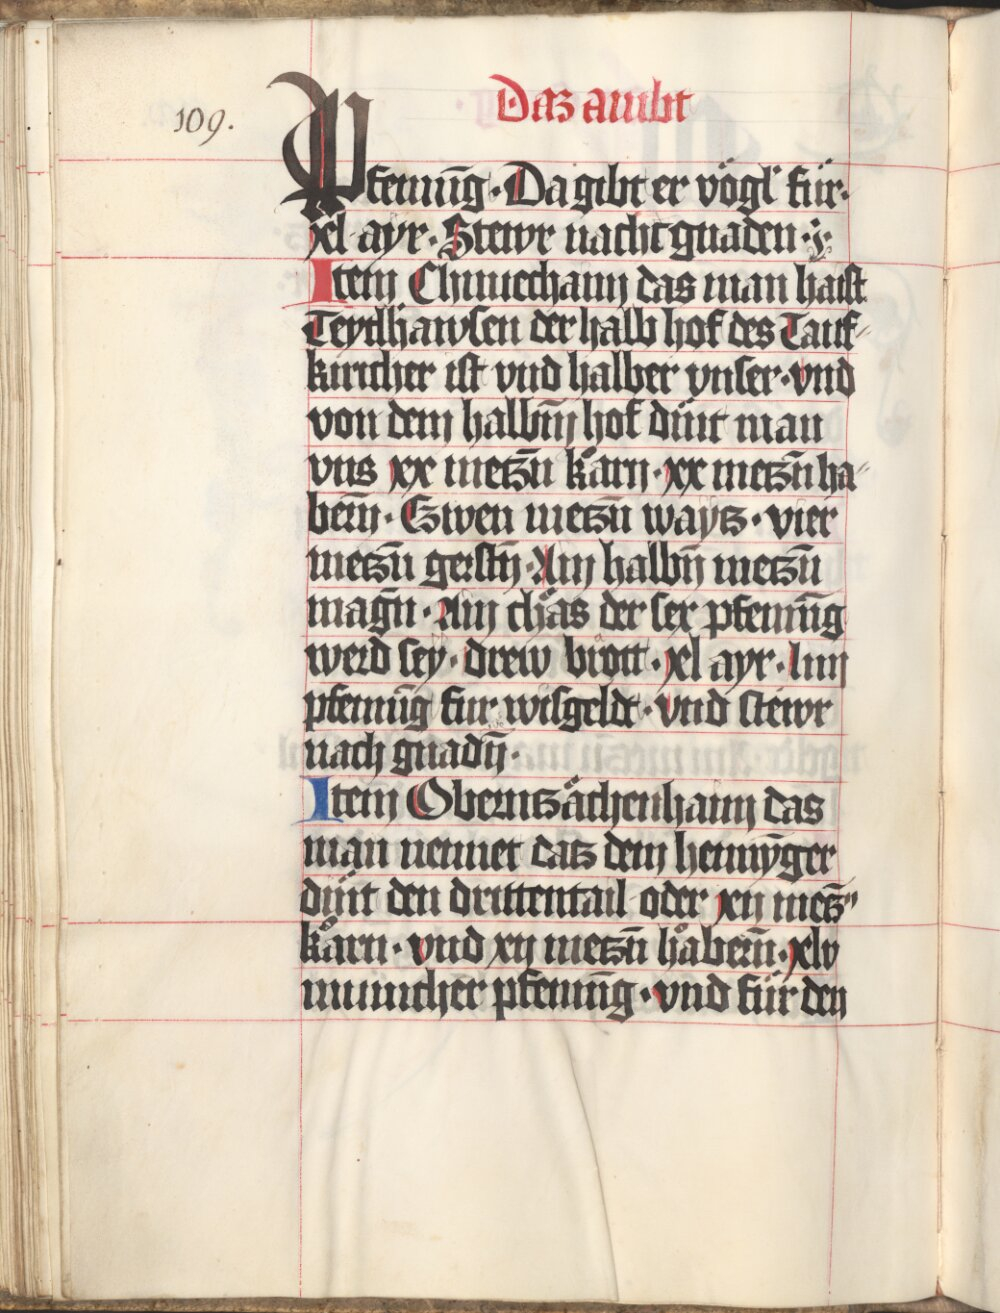 Daz ambt
109.
Pfenning · Da gibt er vögl für ·
xl ayr · Stewr nacht gnaden · j ·
Item Chunechaim das man haist
Teydlhawsen der halb hof des Tauf″
kiricher ist vnd halber ynser · vnd
von dem halbm̄ hof dint man
vns xx meczn̄ karn · xx meczn̄ ha″
bern̄ · Czwen meczn̄ wayts · vier
meczn̄ gerstn̄ · Ain halbn̄ meczn̄
magn̄ · Ain chäs der sex pfennīg
werd sey · drew brott · xl ayr · liiij
pfennīg fur wisgeldt · vnd stewr
nach gnadn̄ ·
Item Oberntzächenhaim das
man nennet datz dem hennȳger
dint den drittentail oder xij mecz̄″
karn · vnd xij meczn̄ habern̄ · xlv
municher pfennīg · vnd für den